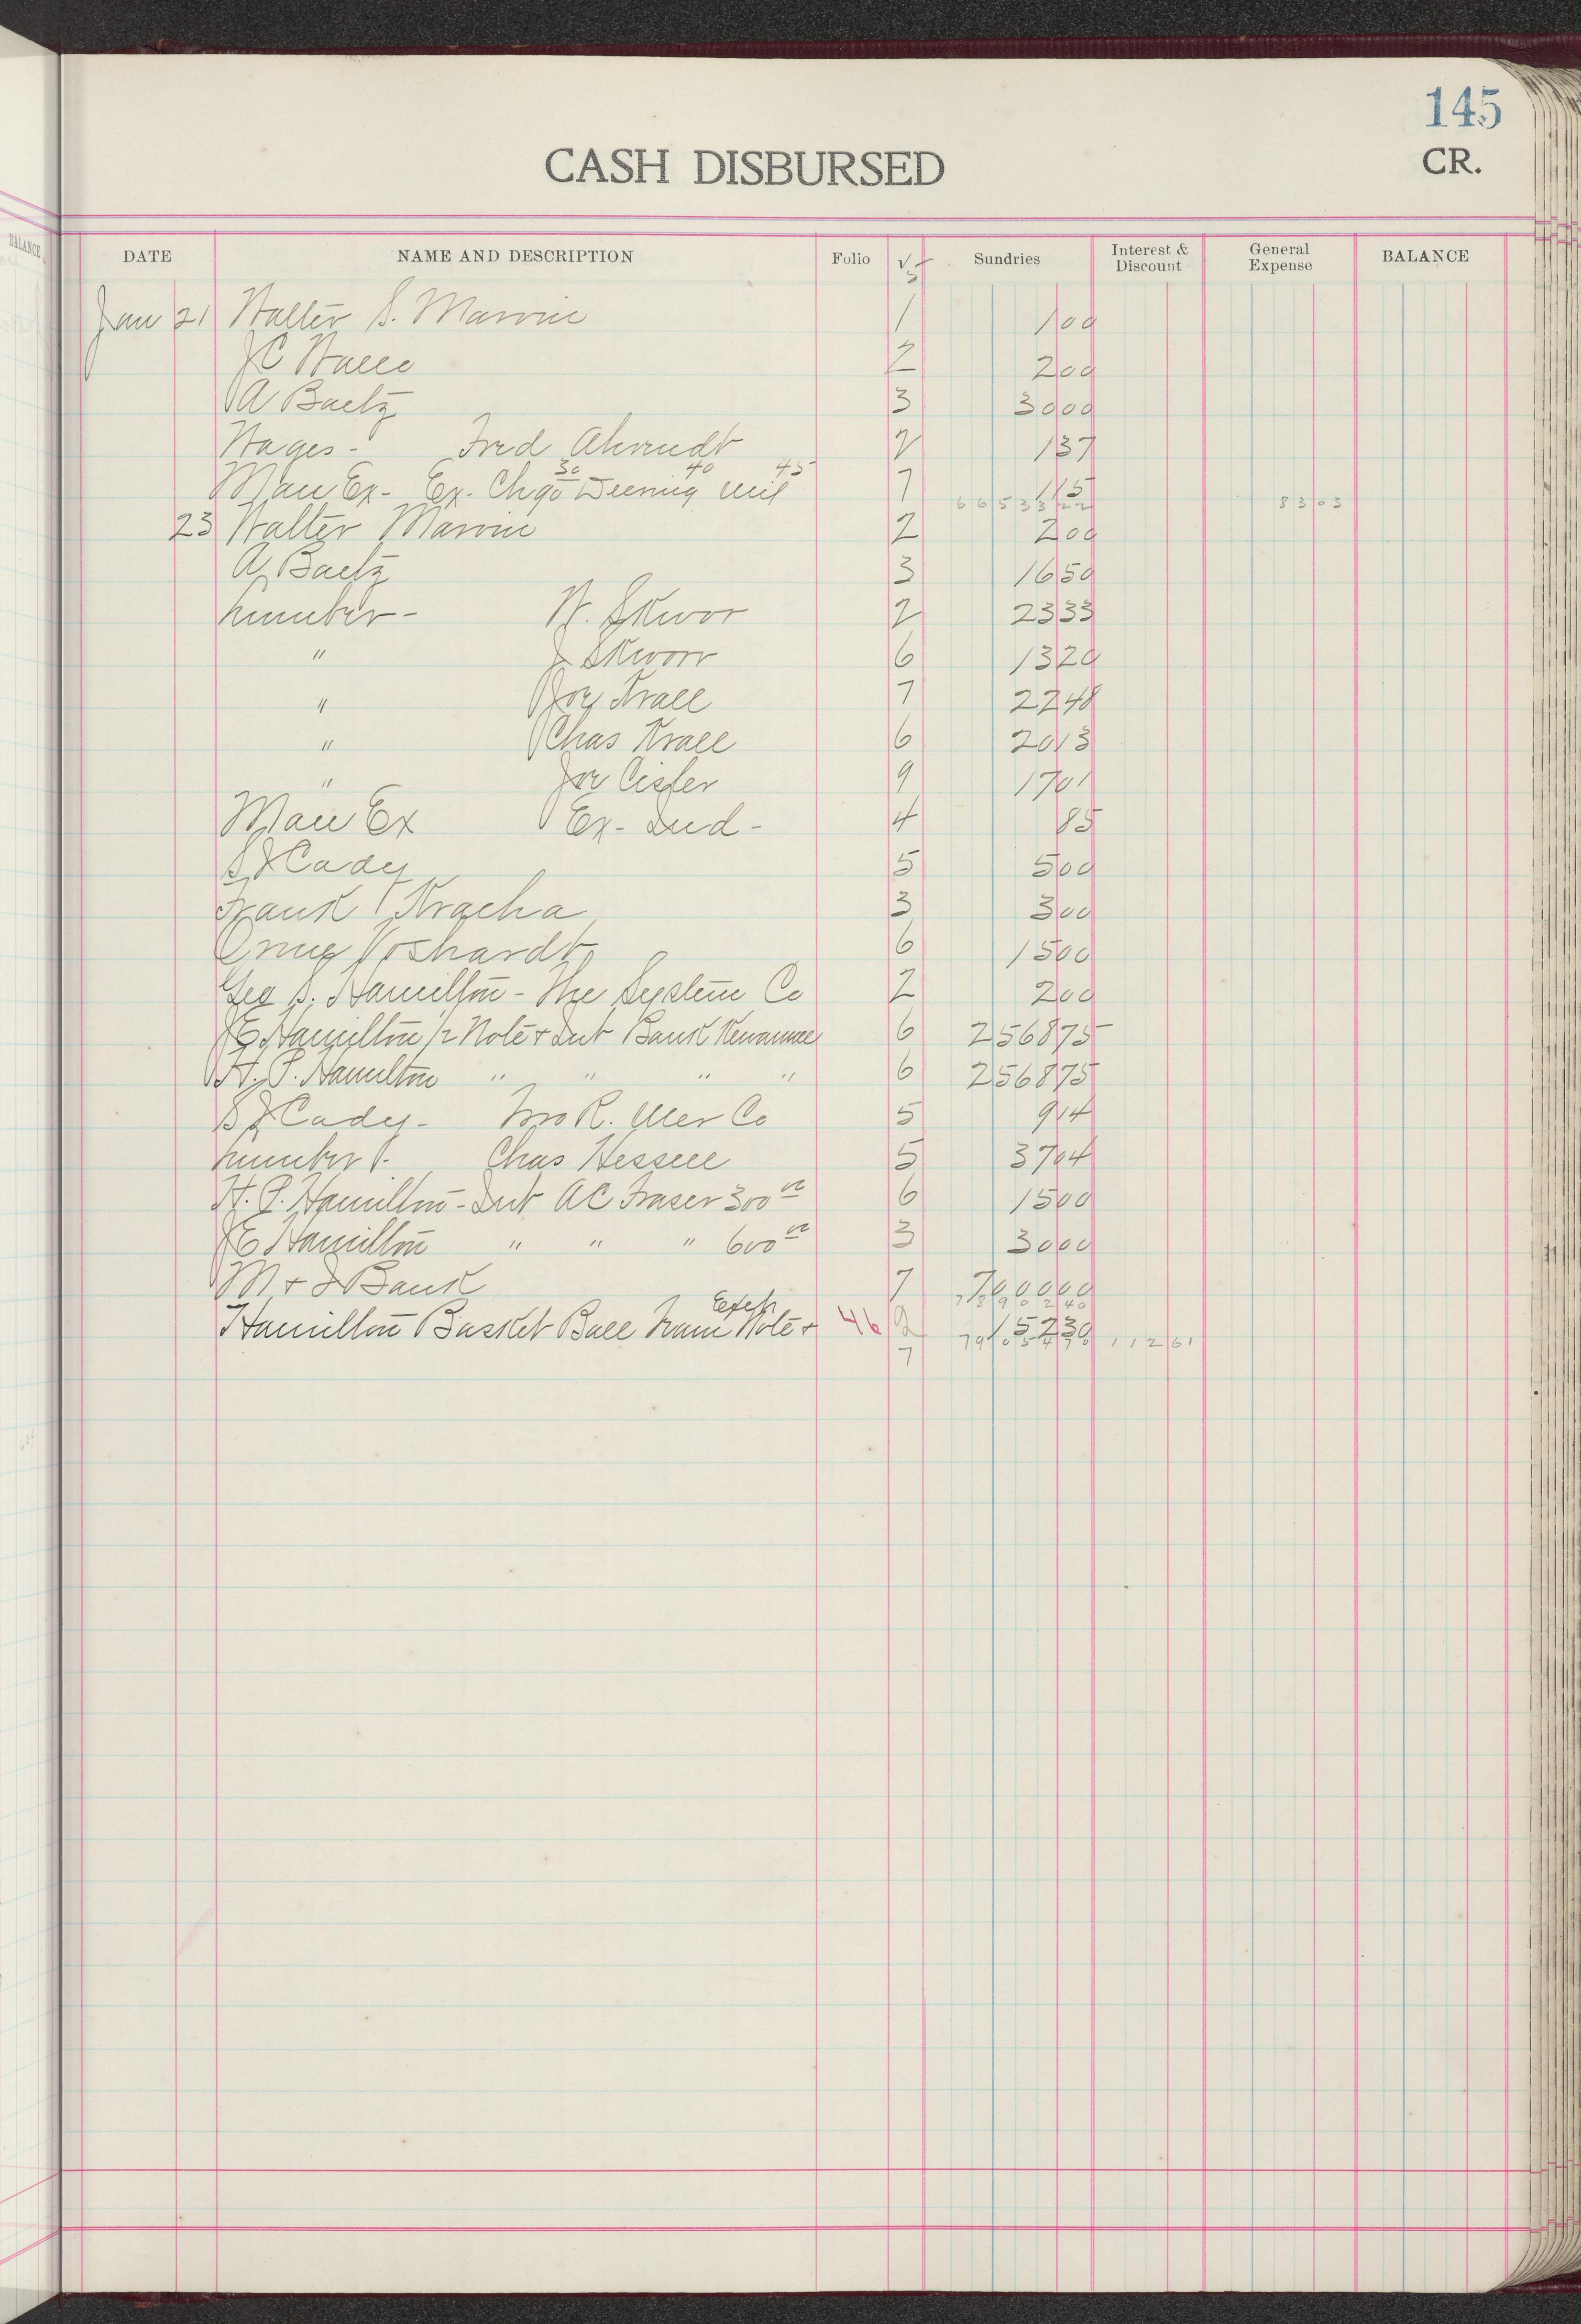 145
CASH DISBURSED CR.
BALANCE
DATE NAME AND DESCRIPTION Folio V Sundries Interest & Discount General Expense BALANCE
Jan 21 Walter S. Marvin 1 1 00
2 2 00
A Baetz 3 30 00
Wages - Fred Ahrendt 2 1 37
30 40 45
Man Ex - Ex. Chgo Deering Mil 7 1 15
6653322 8303
23 Walter Marvin 2 2 00
A Baetz 3 16 50
Lumber - W. Skwor 2 23 33
" J Skworr 6 13 20
" Joy Krall 7 22 48
" Chas Krall 6 20 13
" Joe Cisler 9 17 01
Man Ex Ex - Ind - 4 85
S J Cady 5 5 00
Frank Kracha 3 3 00
Voshardt 6 15 00
Geo S. Hamilton - The System Co 2 2 00
J E Hamilton 1/2 Note + Int Bank Kewaunee 6 2568 75
H. P. Hamilton " " " " 6 2568 75
S J Cady - Two R. Mer Co 5 9 14
Lumber - Chas Hessel 5 37 04
H. P. Hamilton - Int A C Fraser 300 00 6 15 00
J E Hamilton " " " 600 00 3 30 00
M + I Bank 7 7000 00
7890240
Expen
Hamilton Basket Ball Team Note + 46 2 152 30
7 7905470 11261